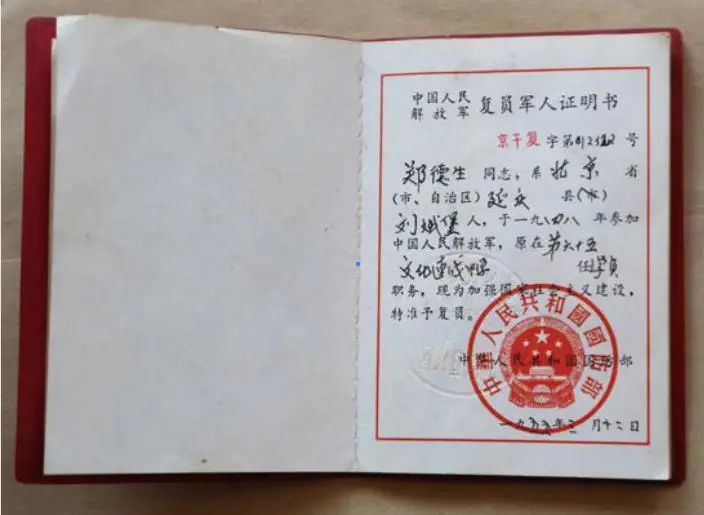 中国人民
解放军 复员军人证明书
京干复 字第 号
郑德生 同志，系 北京 省
（市、自治区）延庆 县（市）
刘斌堡 人，于一九四八年参加
中国人民解放军，原在 第六十五
文化速成中学 任学员
职务，现为加强国家社会主义建设，
特准予复员。
中华人民共和国国防部
中華人民共和國國防部
一九五五年三月十二日